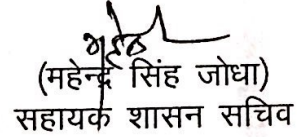 (महेन्द्र सिंह जोधा)
सहायक शासन सचिव